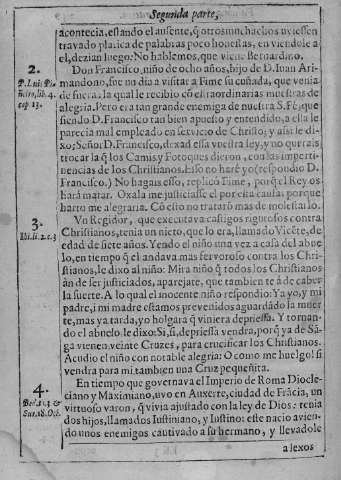 Segunda parte,
acontecia, estando el ausente, q̃ otros muchachos uviessen
travado platica de palabras poco honestas, en viendole a
el, dezian luego: No hablemos, que viene Bernardino.
2.
Don Francisco, niño de ocho años, hijo de D. Iuan Ari-
mandono, fue un dia a visitar a Fime su cuñada, que venia
de fuera, la qual le recibio cõ estraordinarias muestras de
alegria. Pero era tan grande enemiga de nuestra S. Fè, que
siendo D. Francisco tan bien apuesto y entendido, a ella le
parecia mal empleado en servicio de Christo; y assi le di-
xo; Señor D. Francisco, dexad essa vuestra ley, y no querais
trocar la q̃ los Camis y Fotoques dieron, con las imperti-
nencias de los Christianos. Esso no harè yo (respondio D.
Francisco.) No hagais esso, replicò Fime, porq̃ el Rey os
harà matar. Oxala me justiciasse el por esta causa; porque
harto me alegraria. Cõ esto no tratarõ mas de molestarlo.
3.
Vn Regidor, que executava castigos rigurosos contra
Christianos, tenia un nieto, que lo era, llamado Vicẽte, de
edad de siete años. Yendo el niño una vez a casa del abue
lo, en tiempo q̃ el andava mas fervoroso contra los Chris-
tianos, le dixo al niño: Mira niño q̃ todos los Christianos
àn de ser justiciados, aparejate, que tambien te à de caber
la suerte. A lo qual el inocente niño respondio: Ya yo, y mi
padre, i mi madre estamos prevenidos aguardãdo la muer
te, mas ya tarda, yo holgara q̃ viniera depriessa. Y tornan-
do el abuelo, le dixo: Si, si, depriessa vendra, porq̃ ya de Sã-
ga vienen veinte Cruzes, para crucificar los Christianos.
Acudio el niño con notable alegria: O como me huelgo! si
vendra para mi tambien una Cruz pequeñita.
4.
En tiempo que governava el Imperio de Roma Diocle-
ciano y Maximiano, uvo en Auxerre, ciudad de Frãcia, un
virtuoso varon, q̃ vivia ajustado con la ley de Dios: tenia
dos hijos, llamados Iustiniano, y Iustino: este nacio avien-
do unos enemigos cautivado a su hermano, y llevadole
a lexos